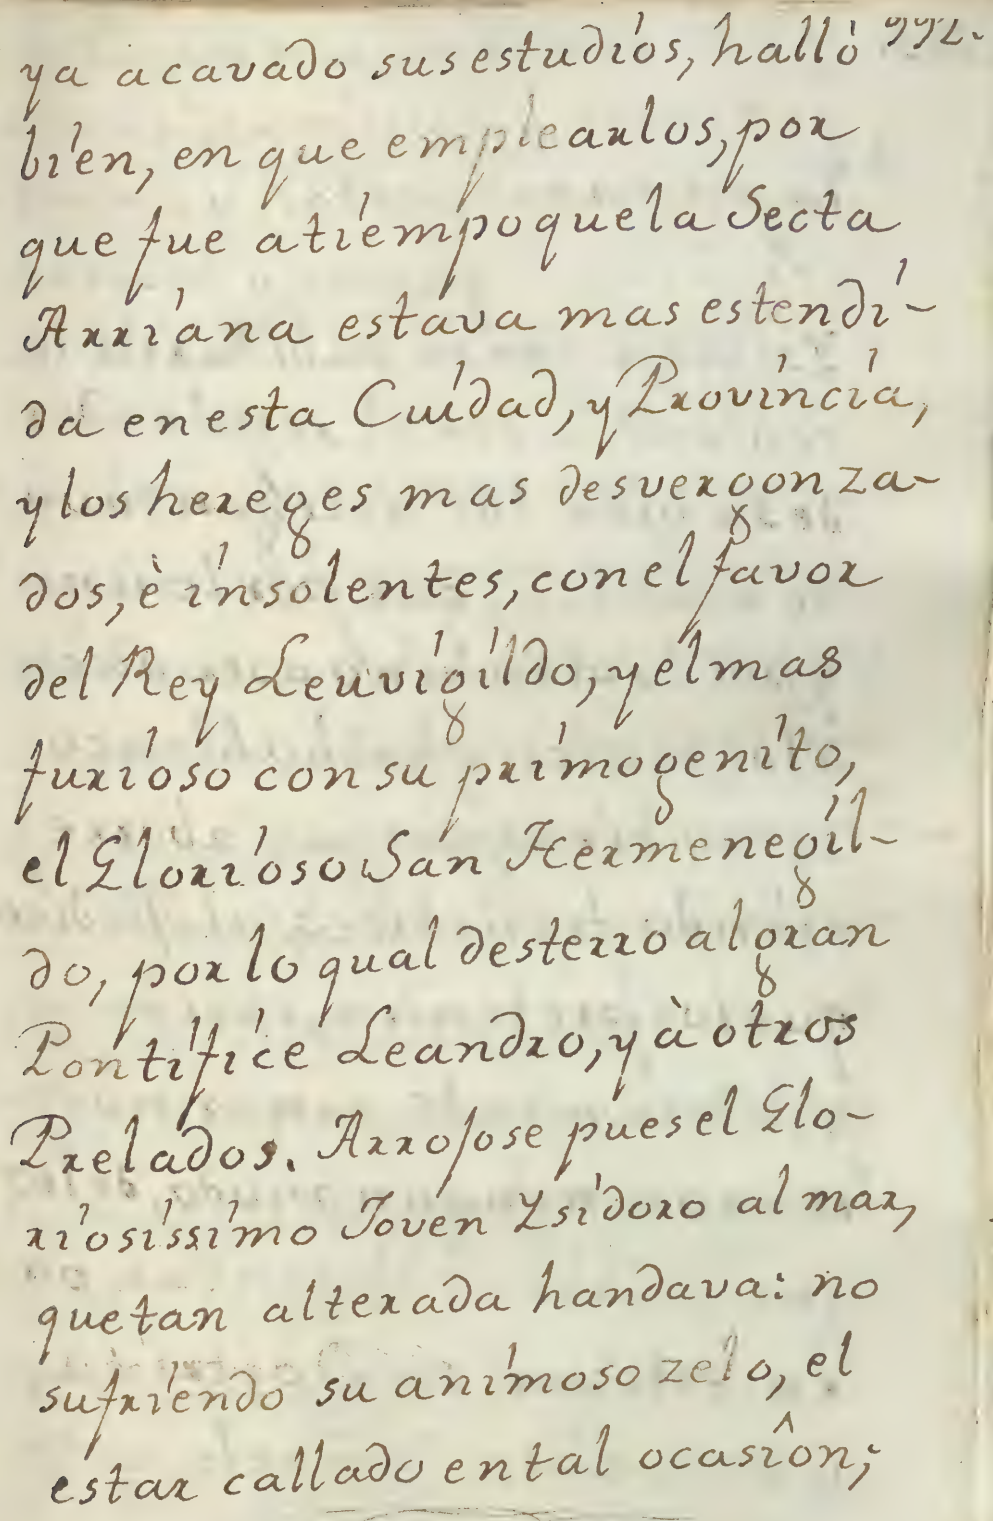 ya acavado sus estudios, hallò
bien, en que emplearlos, por
que fue a tiempo que la Secta
Arriana estava mas estendi-
da en esta Cuidad, y Provincia,
y los hereges mas desvergonza-
dos, è insolentes, con el favor
del Rey Leuvigildo, y el mas
furioso con su primogenito,
el Glorioso San Hermenegil-
do, por lo qual desterro al gran
Pontifice Leandro, y à otros
Prelados. Arrojose pues el Glo-
riosissimo Joven Ysidoro al mar,
que tan alterada handava: no
sufriendo su animoso zelo, el
estar callado en tal ocasiôn;